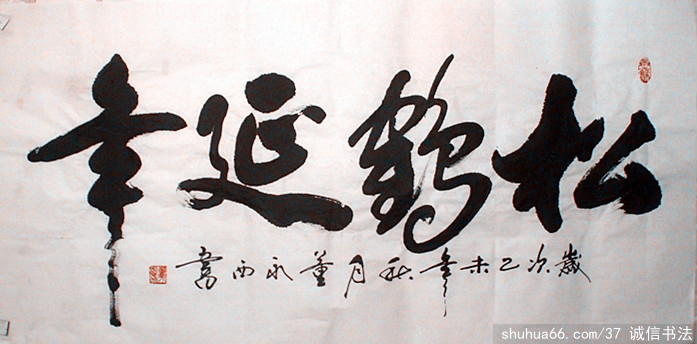 松鶴延年
歲次乙未年秋月董永西書
shuhua66.com/37 诚信书法